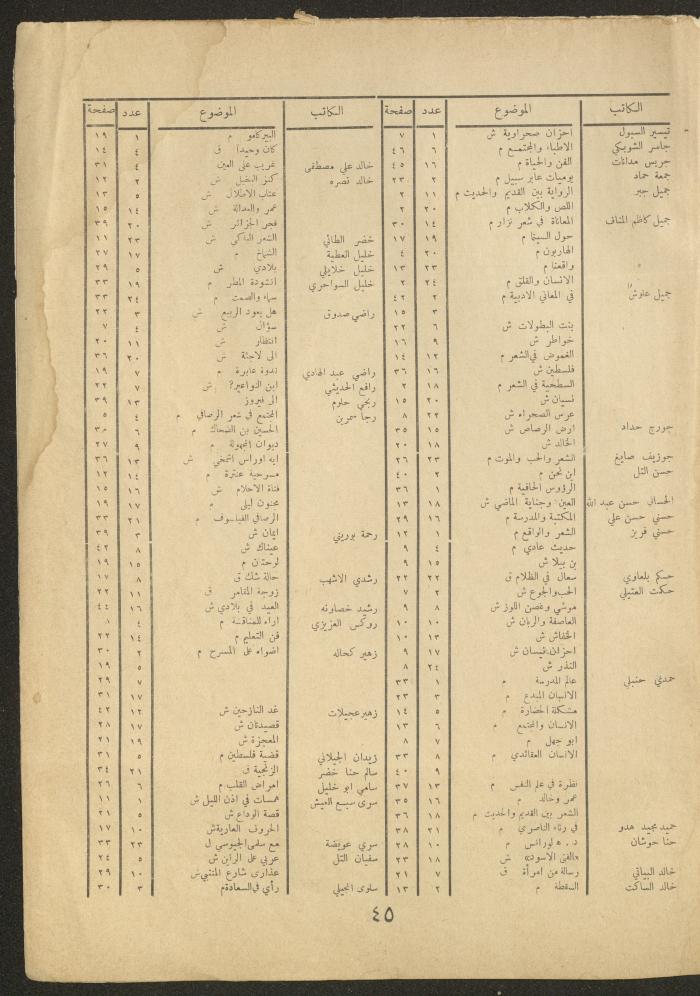 الكاتب الموضوع عدد صفحة
تيسير السبول احزان صحراوية ش ١ ٧
جاسر الشوبكي الاطباء والمجتمع م ٦ ٤٦
جريس مدانات الفن والحياة م ١٦ ٤٥
جمعة حماد يوميات عابر سبيل م ٢ ٢٣
جميل جبر الرواية بين القديم والحديث م ١١ ٢
اللص والكلاب م ٢٠ ٢
جميل كاظم المناف المعاناة في شعر نزار م ١٤ ٣٠
حول السينما م ١٩ ١٧
الهاربون م ٢٠ ٤
واقعنا م ٢٣ ١٣
الانسان والقلق م ٢٤ ٢
جميل علوش في المعاني الادبية م ٢ ٤٢
٣ ١٥
بنت البطولات ش ٦ ٢٢
خواطر ش ٩ ١٦
الغموض في الشعر م ١٢ ١٤
فلسطين ش ١٦ ٣٦
السطحية في الشعر م ١٨ ٢
نسيان ش ٢٠ ١٥
عرس الصحراء ش ٢٢ ٨
جورج حداد ارض الرصاص ش ١٥ ٣٥
الخالد ش ١٨ ٢٠
جوزيف صايغ الشعر والحب والموت م ٢٣ ٢٦
حسن التل ابن نحن م ٢ ٤٠
الرؤوس الحافية م ١ ٣٦
الحسان حسن عبد الله العين وجناية الماضي ش ١٨ ١٣
حسني حسن علي المكتبة والمدرسة م ١٦ ٢٩
حسني فريز الشعر والواقع م ١ ١٢
حديث عادي م ٤ ٩
بن بيلا ش ١٥ ٩
حكم بلعاوي سعال في الظلام ق ٢٢ ٢٢
حكمت العتيلي الحب والجوع ش ٢ ٧
موشي وغصن اللوز ش ٨ ٩
العاصفة والربان ش ١٠ ١٠
الخفاش ش ١٣ ١٠
احزان نيسان ش ١٧ ٩
النذر ش ٢٤ ٨
حمدي حنبلي عالم المدرسة م ١ ٣٣
الانسان المبدع م ٣ ٢٣
مشكلة الحضارة م ٥ ١٤
الانسان والمجتمع م ٦ ١٣
ابو جهل م ٧ ٨
الانسان العقائدي م ٨ ٣٣
٩ ٤٠
نظرة في علم النفس م ١٣ ٣٧
عمر وخالد م ١٦ ٣٥
الشعر بين القديم والحديث م ١٨ ٣٦
حميد مجيد هدو في رثاء الناصري م ٢١ ٣٨
حنا حوشان د. ه لورانس م ١٠ ٢٨
«الفن الاسود» ش ١٨ ٢٣
خالد البياتي رسالة من امرأة ق ٧ ٢١
خالد الساكت السقطة م ٢ ١٣
الكاتب الموضوع عدد صفحة
البيركامو م ١ ١٩
كان وحيدا ق ٤ ١٤
خالد علي مصطفى غريب على العين ٤ ٣١
خالد نصره كنز البخيل ش ٢ ١٢
عتاب الاطلال ش ٥ ١٣
عمر والعدالة ش ١٤ ١٥
فجر الجزائر ش ٢٠ ٣٩
خضر الطائي الشعر الباكي ش ٢٣ ١١
خليل العطية الشماخ م ١٧ ٢٧
خليل خلايلي بلادي ش ٥ ٢٩
خليل السواحري انشودة المطر م ١٩ ٣٣
سماء والصمت م ٢٤ ٣٣
راضي صدوق هل يعود الربيع ش ٣ ٢٢
سؤال ش ٤ ٧
انتظار ش ١١ ٢٠
الى لاجئة ش ٢٠ ٣٦
راضي عبد الهادي ندوة عابرة م ٧ ١٩
رافع الحديثي ابن النواعير؟ ش ٧ ٢٢
ربحي حلوم الى فيروز ١٣ ٣٩
رجا سمرين المجتمع في شعر الرصافي م ٤ ٥
الحسين بن الضحاك م ٦ ٣٠
ديوان المجهولة م ٩ ٢٧
ايه اوراس انتخي ش ١٣ ٣٦
مسرحية عنترة م ١٤ ١٢
فتاة الاحلام ش ١٦ ١٥
مجنون ليلى م ١٧ ١٩
الرصافي الفيلسوف م ٢١ ٣٣
رحمة بوريني ايمان ش ٣ ٣٩
عيناك ش ٨ ٤٢
لوحتان م ١٥ ١٩
رشدي الاشهب حالة شك ق ٨ ١٧
زوجة المقامر ق ١١ ٢٢
رشيد خصاونه العيد في بلادي ش ١٦ ٤٤
روكس العزيزي اراء للمناقشة م ٤ ٨
فن التعليم م ١٤ ٢٢
زهير كحاله اضواء على المسرح م ٢ ٣٠
٥ ١٩
٧ ٢٩
١٧ ٣١
زهير عجيلات غد النازحين ش ١٢ ٤٢
قصيدتان ش ١٧ ٢٨
المعجزة ش ١٩ ٢١
زيدان الجيلاني قضية فلسطين م ٥ ٣١
سالم حنا خضر الزنجية ق ٢١ ٣٤
سامي ابو خليل امراض القلب م ٦ ٢٦
سري سبع العيش همسات في اذن الليل ش ١ ١١
قصة الوداع ش ٥ ٢١
الحروف العارية ش ١٠ ١٧
سري عويضة مع سلمى الجيوسي ل ٢٣ ٣٣
سفيان التل عربي على الراين ش ٥ ٢٤
عذارى شارع المتنبي ش ١٠ ٢٩
سلوى انجيلي رأي في السعادة م ٣ ٣٠
٤٥